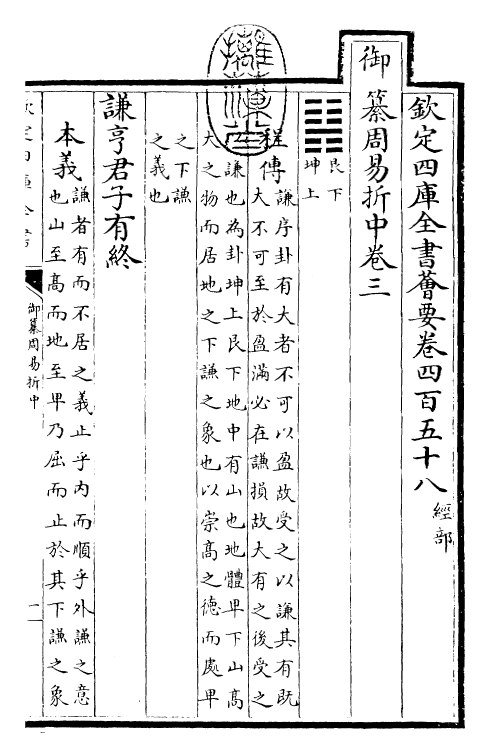 欽定四庫全書薈要卷四百五十八 經部
御纂周易折中卷三
䷎ 艮下
坤上
程傳 謙序卦有大者不可以盈故受之以謙其有既
大不可至於盈滿必在謙損故大有之後受之
以謙也為卦坤上艮下地中有山也地體卑下山高
大之物而居地之下謙之象也以崇高之德而處卑
之下謙
之義也
謙亨君子有終
本義 謙者有而不居之義止乎内而順乎外謙之意
也山至高而地至卑乃屈而止於其下謙之象
欽定四庫全書
御纂周易折中
一